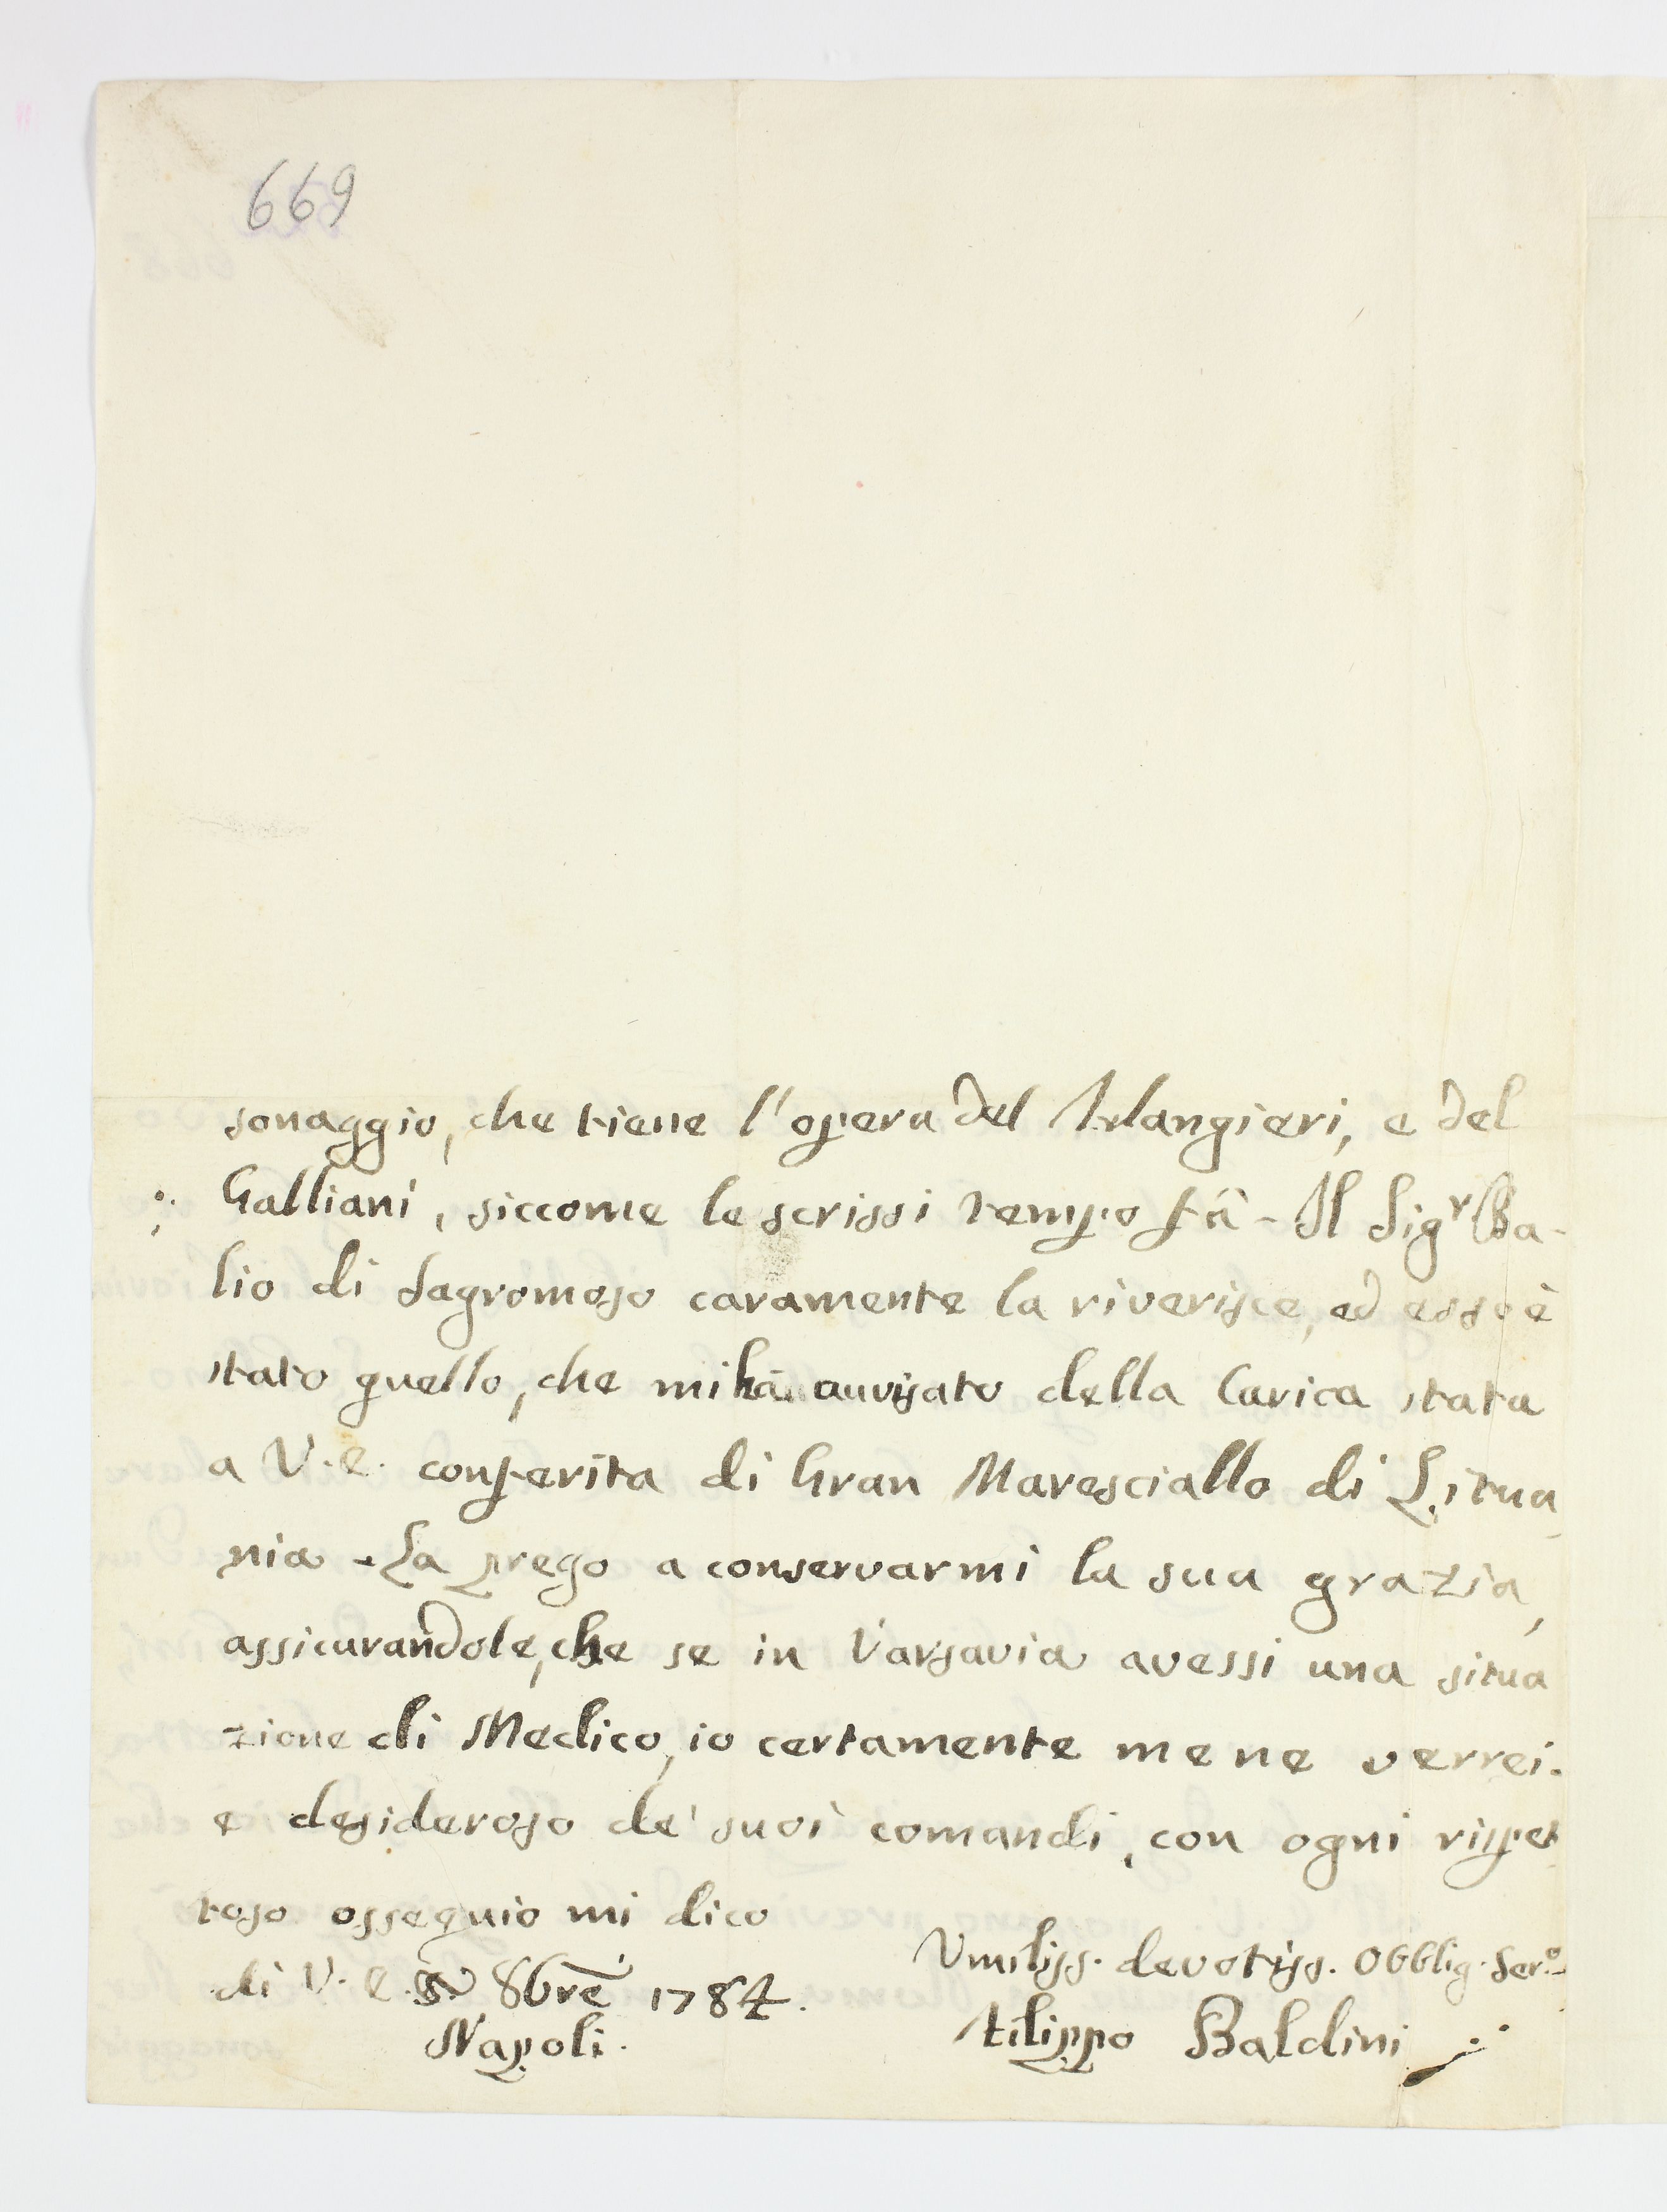 669
sonaggio, che tiene l'opera del Filangieri, e del
Galliani, siccome le scrissi tempo fà - Il Sigr Ba-
lio di Sagromoso caramente la riverisce, ed esso è
stato quello, che mi hà auvisato della Carica stata
a V. E. conferita di Gran Maresciallo di Litua
nia - La prego a conservarmi la sua grazia,
assicurandole, che se in Varsavia avessi una situa
zione di Medico, io certamente me ne verrei.
e desideroso de' suoi comandi, con ogni rispet
toso ossequio mi dico
di V. E. 8bre 1784.
Napoli.
Umiliss. devotiss. Obblig. Sero
Filippo Baldini